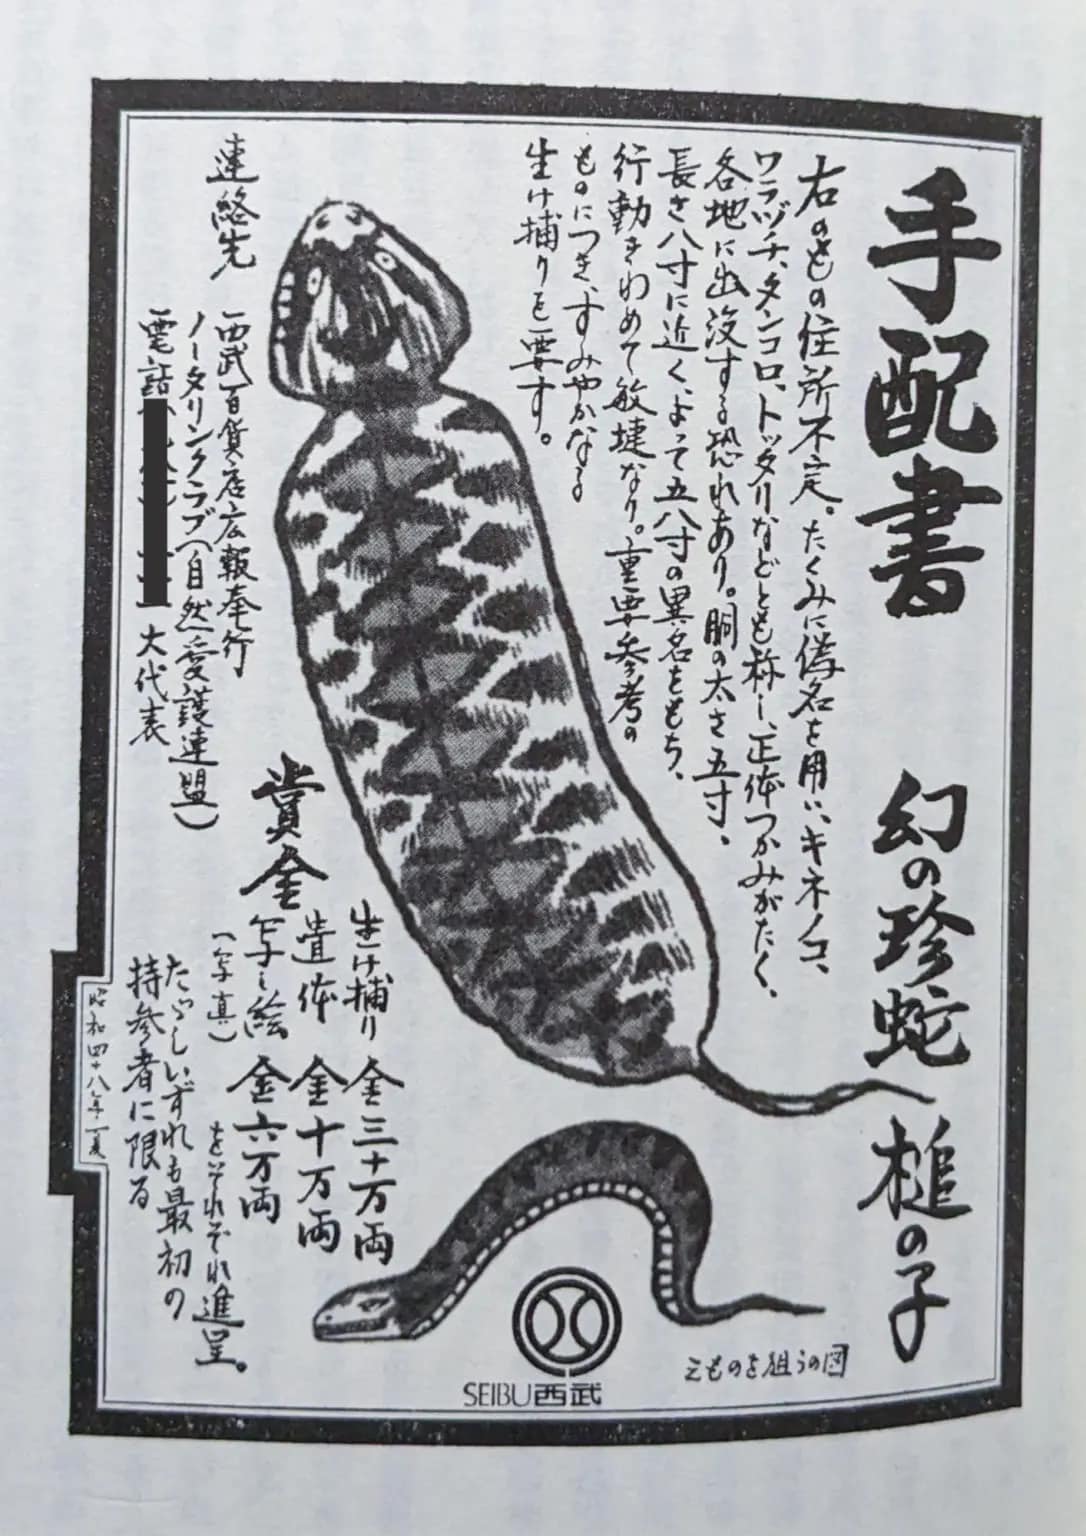 手配書　幻の珍蛇　槌の子
右のもの住所不定。たくみに偽名を用い、キネノコ、
ワラヅチ、タンコロ、トッタリなどとも称し、正体つかみがたく、
各地に出没する恐れあり。胴の太さ五寸、
長さ八寸に近く、よって五八寸の異名をもち、
行動きわめて敏捷なり。重要参考の
ものにつき、すみやかなる
生け捕りを要す。
賞金
生け捕り　金三十万両
遺体　金十万両
写し絵　金六万両
（写真）　をそれぞれ進呈。
ただしいずれも最初の
持参者に限る
連絡先
西武百貨店広報奉行
ノータリンクラブ（自然愛護連盟）
電話　大代表
昭和四十八年夏
えものを狙うの図
SEIBU西武